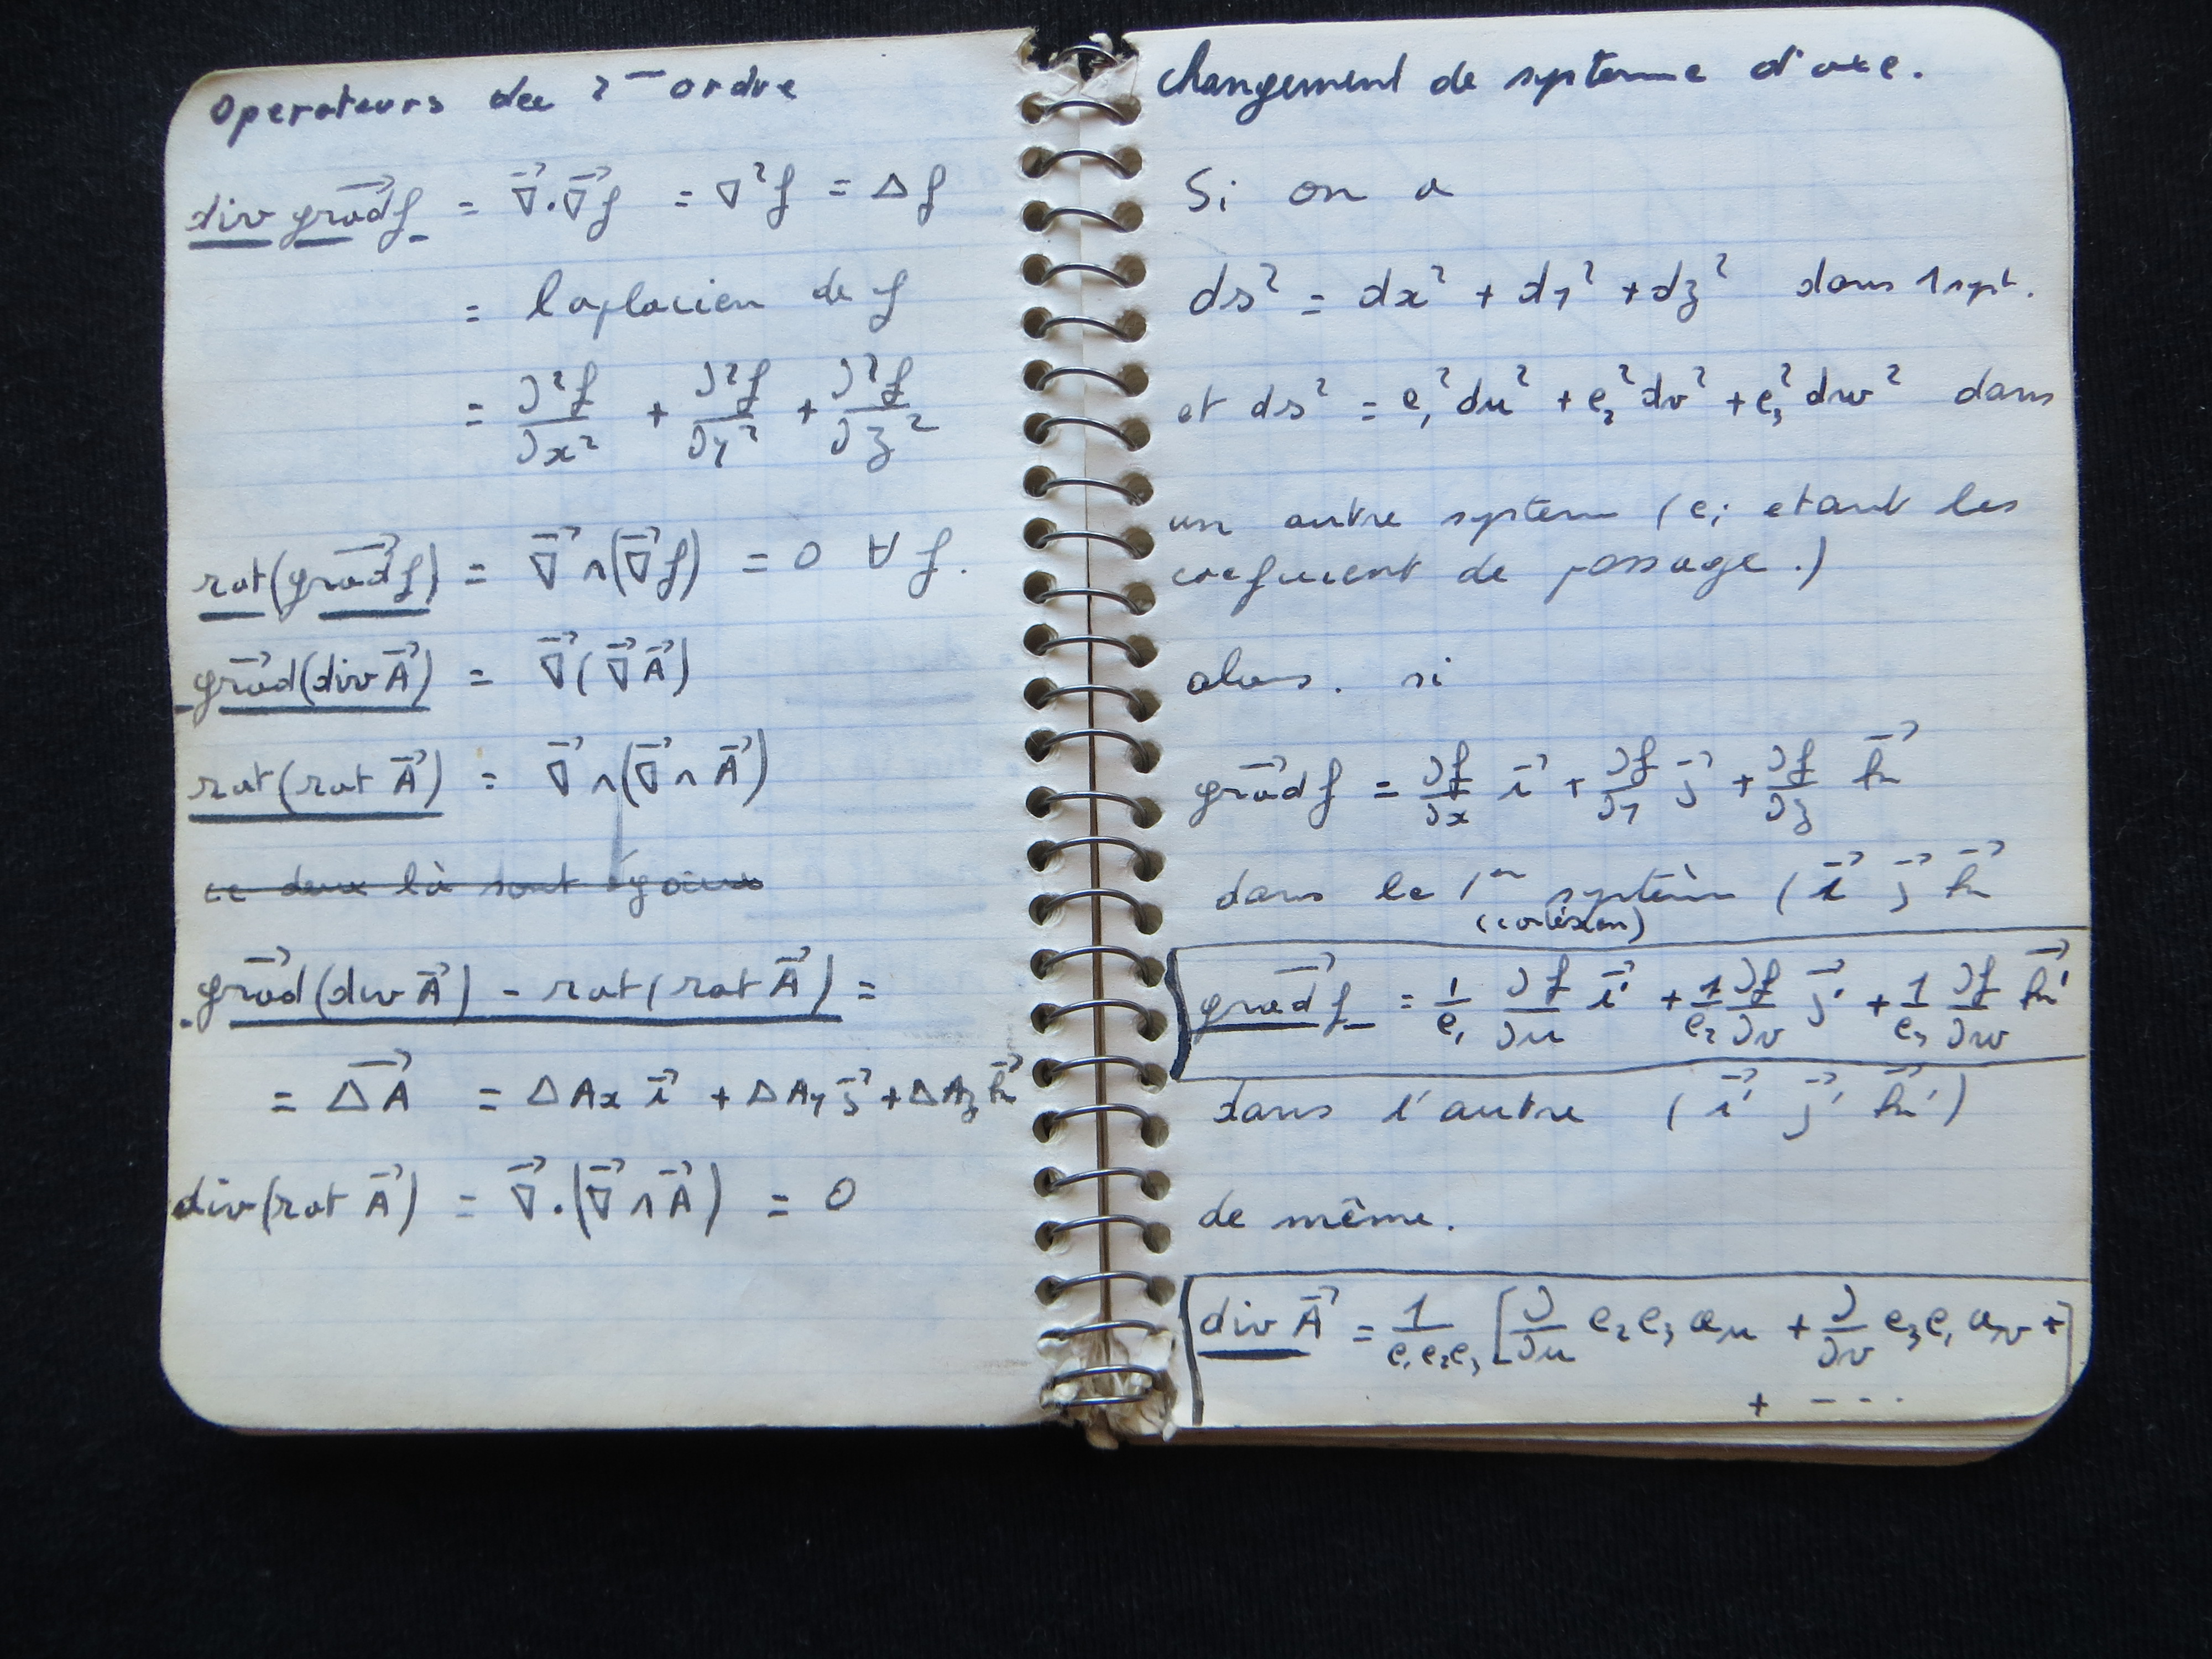 Operateurs du 2me ordre
div grad⃗ f = ∇⃗.∇⃗f = ∇²f = Δf
= laplacien de f
= ∂²f/∂x² + ∂²f/∂y² + ∂²f/∂z²
rot(grad⃗ f) = ∇⃗∧(∇⃗f) = 0 ∀f.
grad⃗(div A⃗) = ∇⃗(∇⃗A⃗)
rot(rot A⃗) = ∇⃗∧(∇⃗∧A⃗)
ce deux là sont égaux
grad⃗(div A⃗) - rot(rot A⃗) =
= ΔA⃗ = ΔAx i⃗ + ΔAy j⃗ + ΔAz k⃗
div(rot A⃗) = ∇⃗.(∇⃗∧A⃗) = 0
Changement de systeme d'axe.
Si on a
ds² = dx² + dy² + dz² dans 1 syst.
et ds² = e₁²du² + e₂²dv² + e₃²dw² dans
un autre système (ei etant les
coefficient de passage.)
alors. si
grad⃗ f = ∂f/∂x i⃗ + ∂f/∂y j⃗ + ∂f/∂z k⃗
dans le 1er système (i⃗ j⃗ k⃗
(cartésien)
grad⃗ f = 1/e₁ ∂f/∂u i⃗' + 1/e₂ ∂f/∂v j⃗' + 1/e₃ ∂f/∂w k⃗'
dans l'autre (i⃗' j⃗' k⃗')
de même.
div A⃗ = 1/e₁e₂e₃ [∂/∂u e₂e₃ au + ∂/∂v e₃e₁ av +]
+ - - -